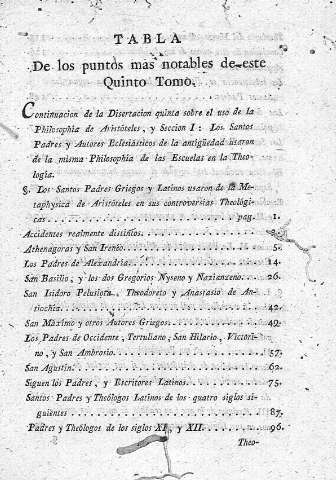 TABLA
De los puntos mas notables de este
Quinto Tomo.
Continuacion de la Disertacion quinta sobre el uso de la
Philosophia de Aristóteles, y Seccion I: Los Santos
Padres y Autores Eclesiásticos de la antigüedad usaron
de la misma Philosophia de las Escuelas en la Theo-
logía.
§. Los Santos Padres Griegos y Latinos usaron de la Me-
taphysica de Aristóteles en sus controversias Theológi-
cas . . . . . . . . . . . . . . . . . . pag. 1.
Accidentes realmente distintos. . . . . . . . . . . .
Athenagoras y San Irenéo. . . . . . . . . . . . . . 5.
Los Padres de Alexandría. . . . . . . . . . . . . . 14.
San Basilio, y los dos Gregorios Nyseno y Nazianzeno. 26.
San Isidoro Pelusiota, Theodoreto y Anastasio de An-
tiochîa. . . . . . . . . . . . . . . . . . . . 42.
San Máximo y otros Autores Griegos. . . . . . . . . 49.
Los Padres de Occidente, Tertuliano, San Hilario, Victori-
no, y San Ambrosio. . . . . . . . . . . . . . . 57.
San Agustin. . . . . . . . . . . . . . . . . . . . 62.
Siguen los Padres, y Escritores Latinos. . . . . . . 75.
Santos Padres y Theólogos Latinos de los quatro siglos si-
guientes . . . . . . . . . . . . . . . . . . . 87.
Padres y Theólogos de los siglos XI, y XII. . . . . . 96.
Theo-